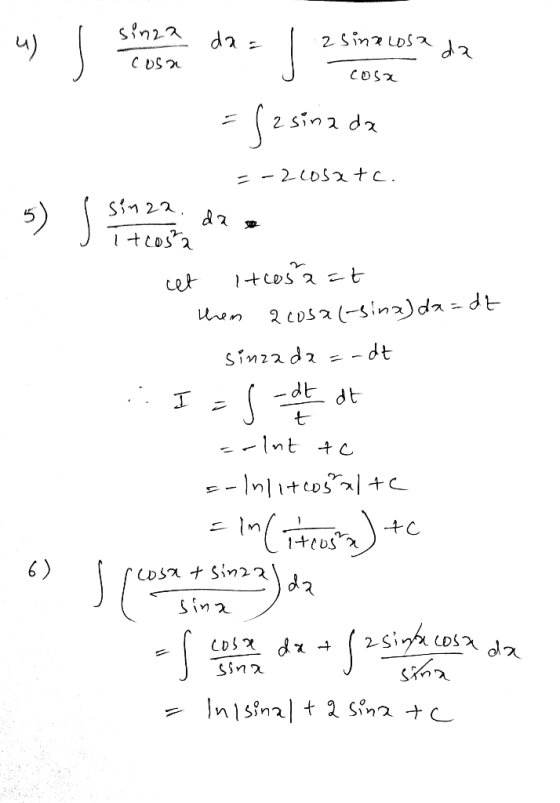 4) ∫ sin2x / cosx dx = ∫ 2 sinx cosx / cosx dx
= ∫ 2 sinx dx
= -2 cosx + c.
5) ∫ sin2x. / 1+cos²x dx
let 1+cos²x = t
then 2cosx(-sinx)dx = dt
sin2x dx = -dt
∴ I = ∫ -dt / t dt
= -lnt + c
= -ln|1+cos²x| + c
= ln(1 / 1+cos²x) + c
6) ∫ (cosx + sin2x / sinx) dx
= ∫ cosx / sinx dx + ∫ 2 sinx cosx / sinx dx
= ln|sinx| + 2 sinx + c